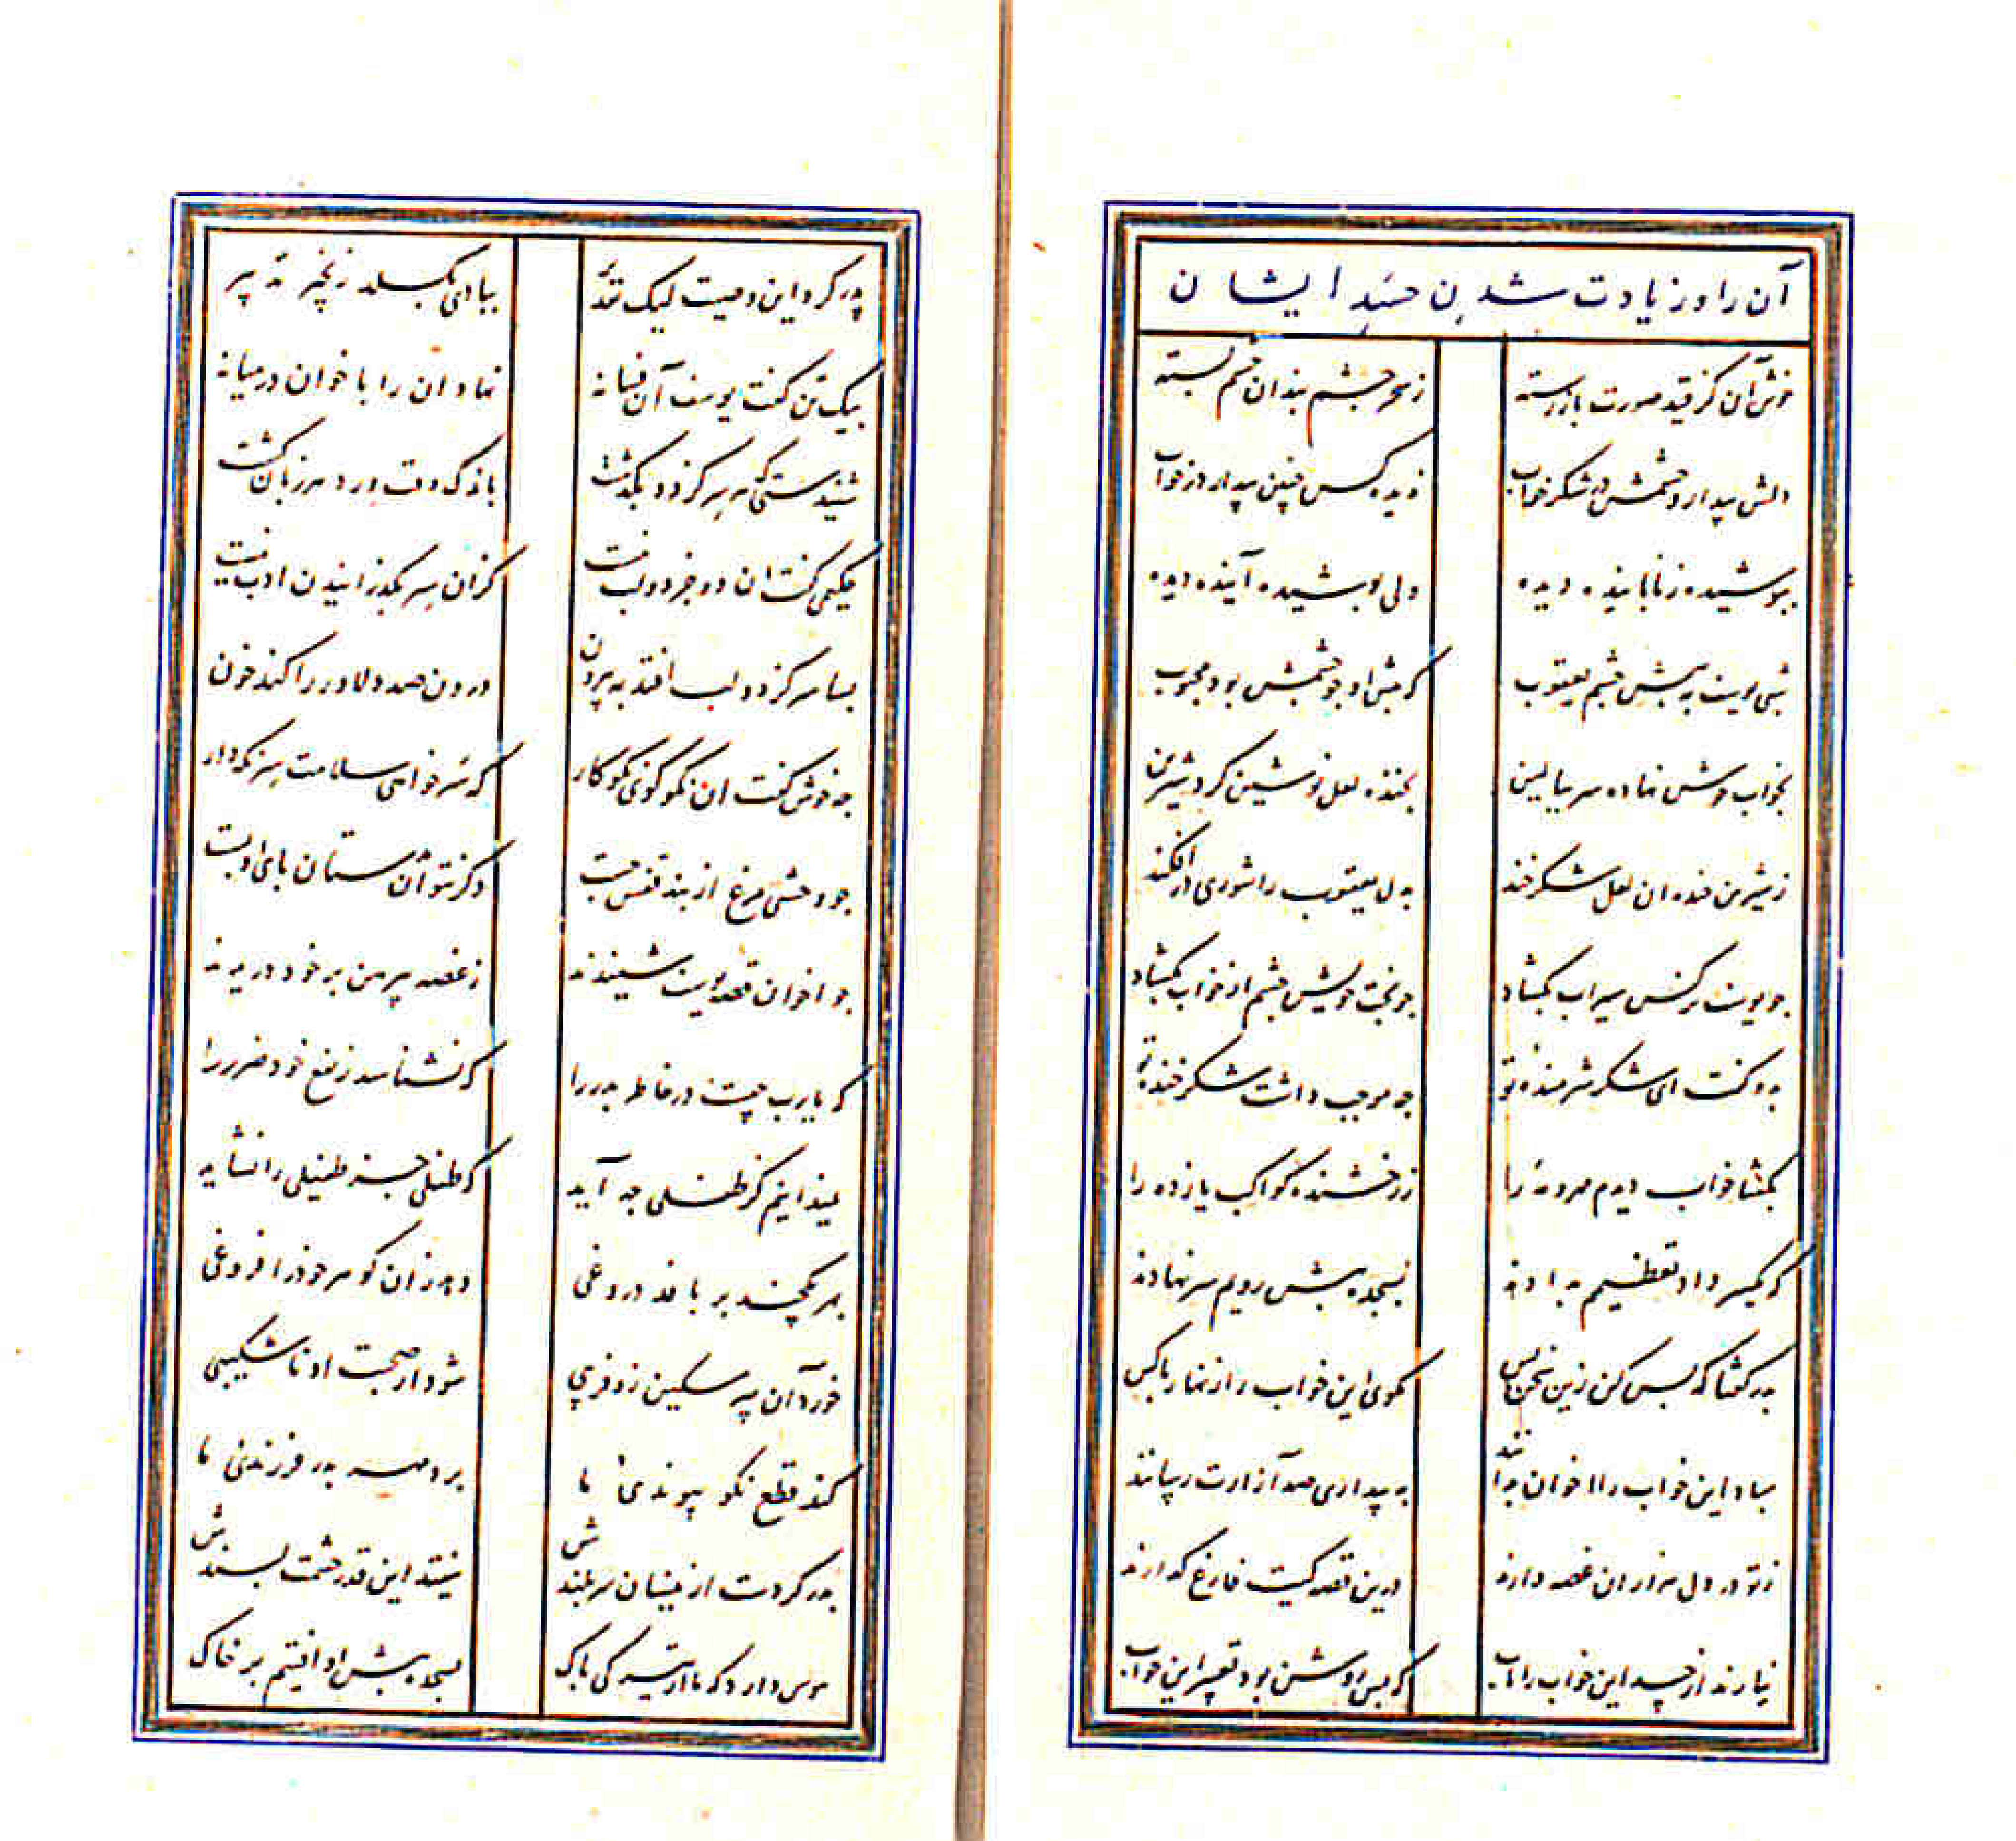 آن را و زیادت شدن حسد ایشان
خوش آن کز قید صورت باز رسته ز سحر چشم بندان چشم بسته
دلش بیدار و چشمش در شکر خواب ندیده کس چنین بیدار در خواب
بپوشیده ز ناپاینده دیده ولی پوشیده آینده دیده
شبی یوسف به پیش چشم یعقوب که پیش او چو چشمش بود محبوب
بخواب خوش نهاده سر ببالین بخنده لعل نوشین کرد شیرین
ز شیرین خنده آن لعل شکرخند بدل یعقوب را شوری در افکند
چو یوسف نرگس سیراب بگشاد چو بخت خویش چشم از خواب بگشاد
بدو گفت ای شکر شرمنده تو چه موجب داشت شکر خنده تو
بگفتا خواب دیدم مهر و مه را ز رخشنده کواکب یازده را
که یکسر داد تعظیم بدادند بسجده پیش رویم سر نهادند
پدر گفتا که بس کن زین سخن بس مگوی این خواب را زنهار با کس
مباد این خواب را اخوان بدانند به بیداری صد آزارت رسانند
ز تو در دل هزاران غصه دارند درین قصه کیت فارغ گذارند
نیارند از حسد این خواب را تاب که بس روشن بود تعبیر این خواب
پدر کرد این وصیت لیک تقدیر ببادی بگسلد زنجیر تدبیر
بیک تن گفت یوسف آن فسانه نهاد آن را باخوان در میانه
شنیدستی که هر سر کز دو بگذشت باندک وقت ورد هر زبان گشت
حکیمی گفت آن دو جز دو لب نیست کزان سر بگذرانیدن ادب نیست
بسا سر کز دو لب افتد به بیرون درون صد دلاور را کند خون
چه خوش گفت آن نکو گوی نکو کار که سر خواهی سلامت سر نگه دار
چو وحشی مرغ از بند قفس جست دگر نتوان بدستان پای او بست
چو اخوان قصه یوسف شنیدند ز غصه پیرهن بر خود دریدند
که یارب چیست در خاطر پدر را که نشناسد ز نفع خود ضرر را
نمیدانیم کز طفلی چه آید که طفلی جز طفیلی را نشاید
بهر یکچند بر بافد دروغی دهد زان گوهر خود را فروغی
خورد آن پیر مسکین زو فریبی شود از صحبت او ناشکیبی
کند قطع نکو پیوندی ما برد مهر پدر فرزندی ما
پدر کردست ازینسان سر بلندش نیفتد این قدر حشمت پسندش
هوس دارد که ما از تیره گی پاک بسجده پیش او افتیم بر خاک